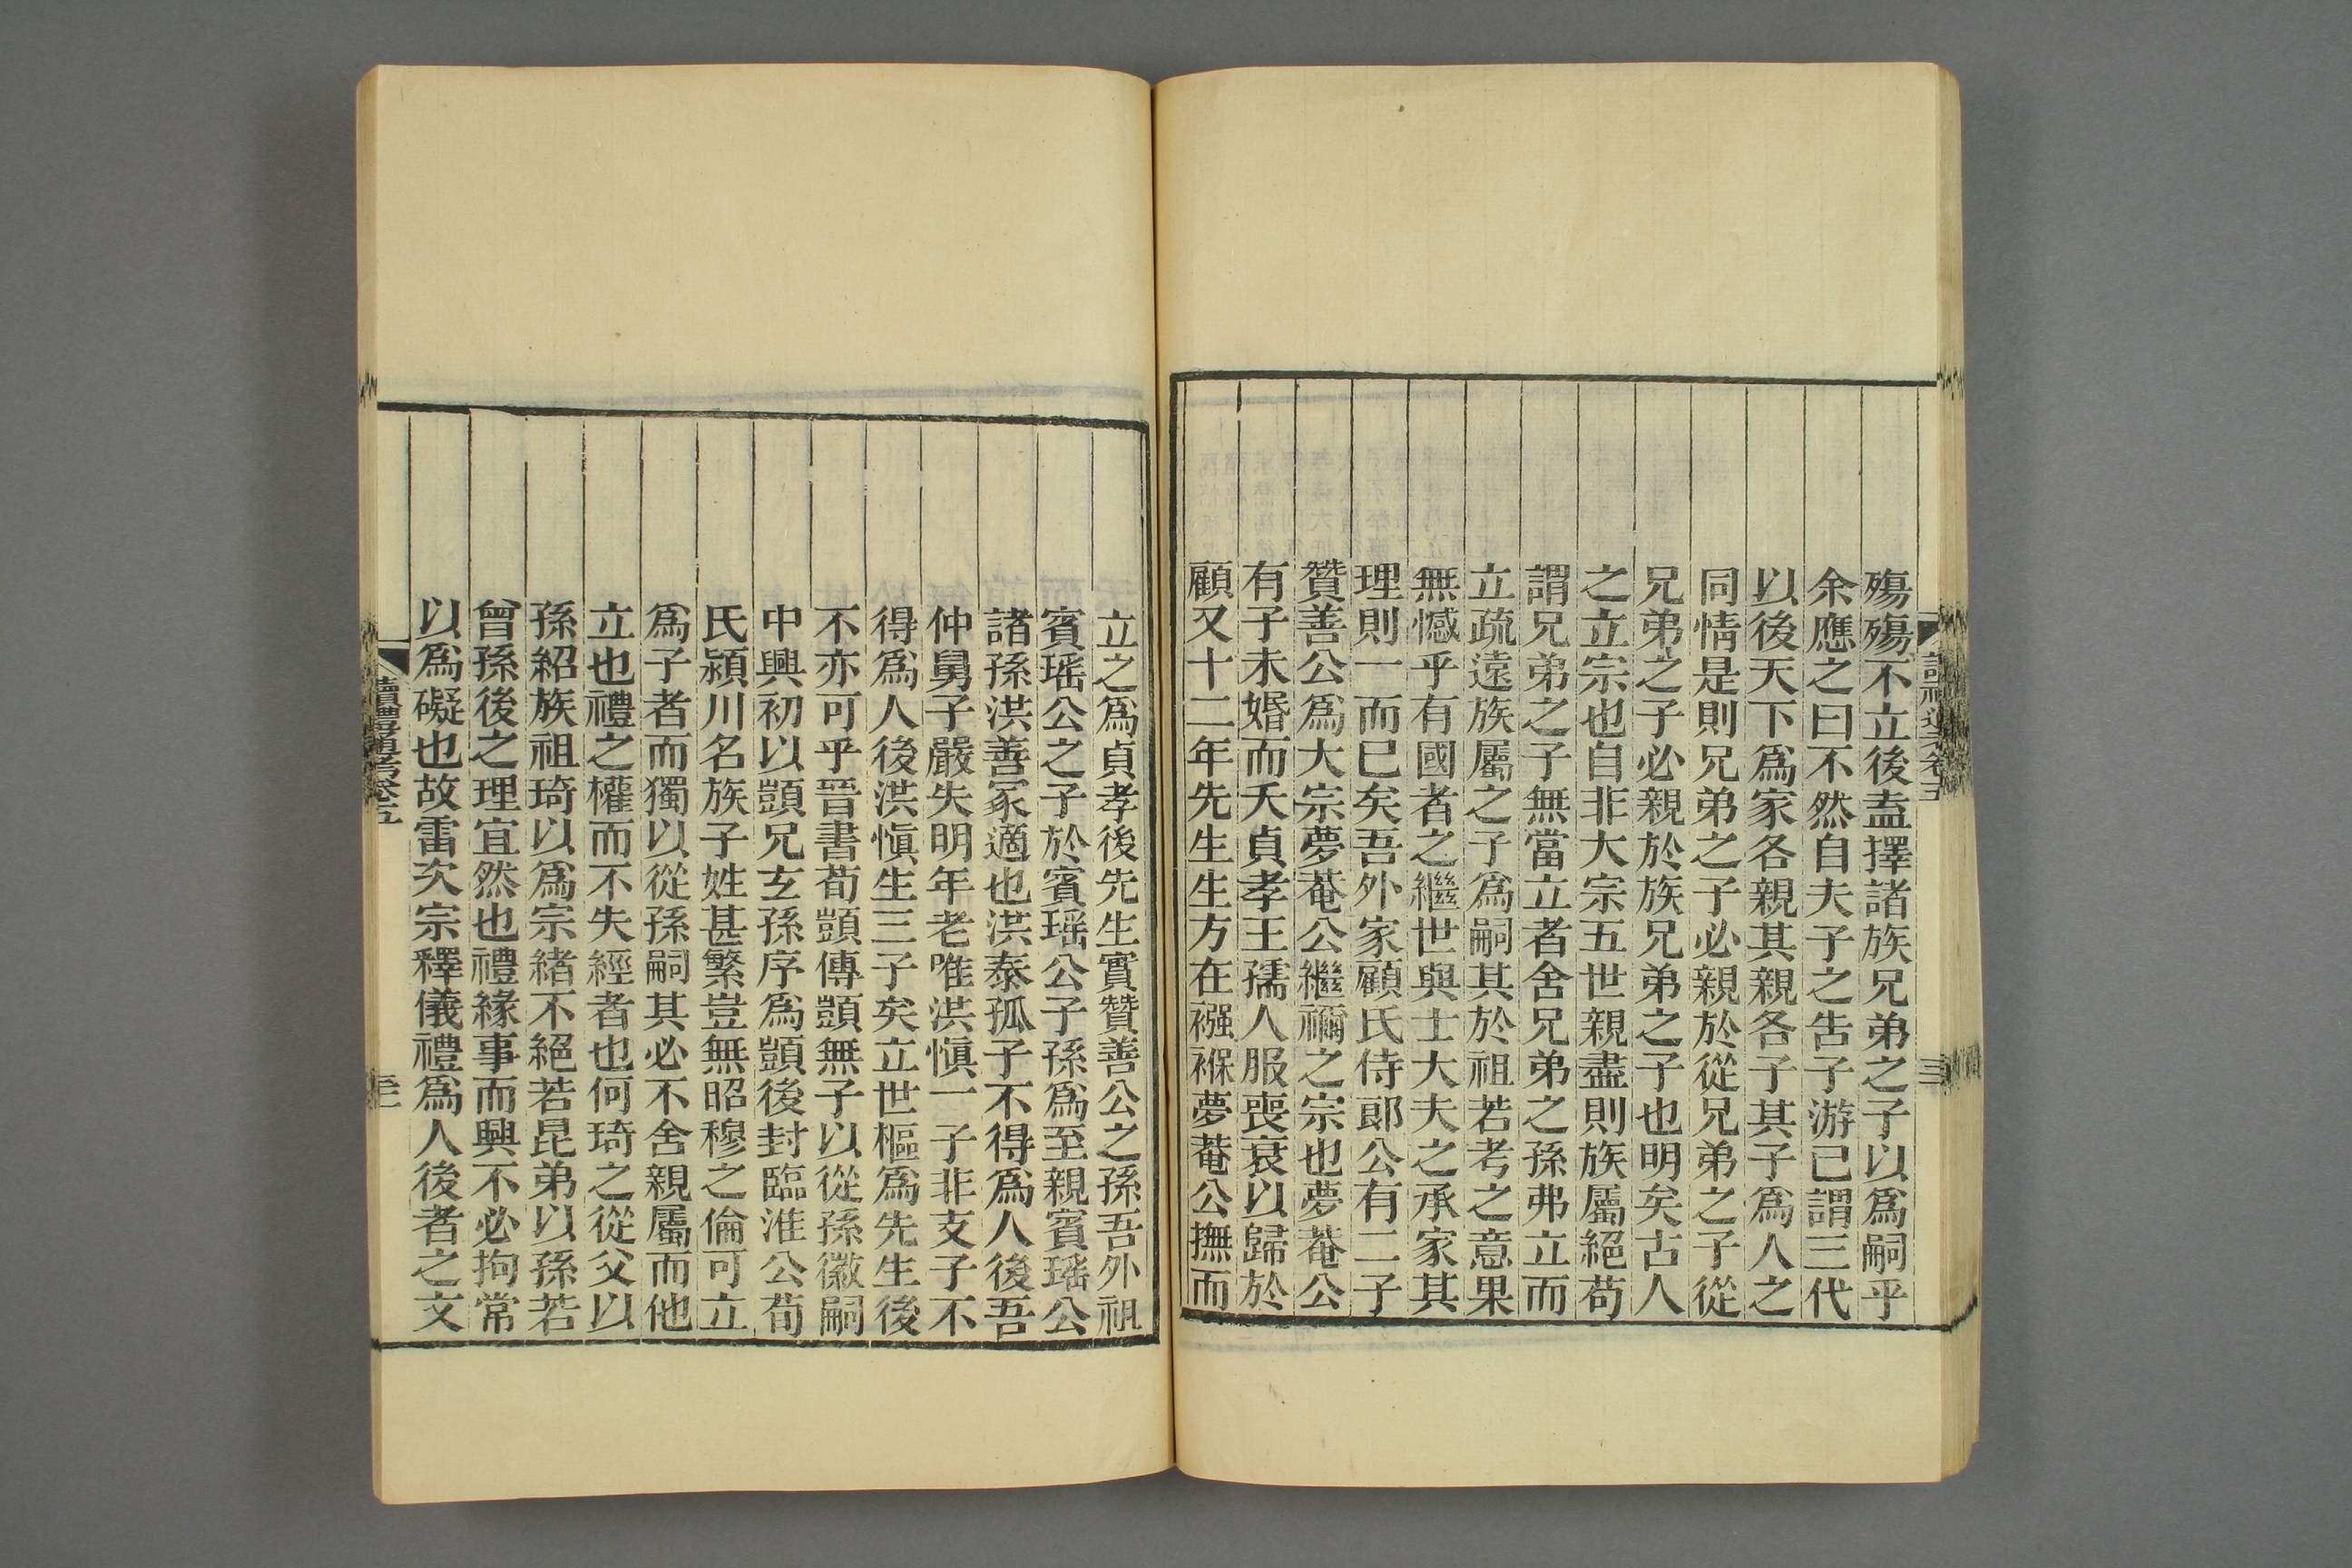 殤殤不立後盍擇諸族兄弟之子以爲嗣乎
余應之曰不然自夫子之吿子游已謂三代
以後天下爲家各親其親各子其子爲人之
同情是則兄弟之子必親於從兄弟之子從
兄弟之子必親於族兄弟之子也明矣古人
之立宗也自非大宗五世親盡則族屬絕苟
謂兄弟之子無當立者舍兄弟之孫弗立而
立疏遠族屬之子爲嗣其於祖若考之意果
無憾乎有國者之繼世與士大夫之承家其
理則一而已矣吾外家顧氏侍郎公有二子
贊善公爲大宗夢菴公繼禰之宗也夢菴公
有子未婚而夭貞孝王孺人服喪衰以歸於
顧又十二年先生生方在襁褓夢菴公撫而
立之爲貞孝後先生實贊善公之孫吾外祖
賓瑤公之子於賓瑤公子孫爲至親賓瑤公
諸孫洪善冢適也洪泰孤子不得爲人後吾
仲舅子嚴失明年老唯洪愼一子非支子不
得爲人後洪愼生三子矣立世樞爲先生後
不亦可乎晉書荀顗傳顗無子以從孫徽嗣
中興初以顗兄玄孫序爲顗後封臨淮公荀
氏潁川名族子姓甚繁豈無昭穆之倫可立
爲子者而獨以從孫嗣其必不舍親屬而他
立也禮之權而不失經者也何琦之從父以
孫紹族祖琦以爲宗緒不絕若昆弟以孫若
曾孫後之理宜然也禮緣事而興不必拘常
以爲礙也故雷次宗釋儀禮爲人後者之文
讀禮通考卷五